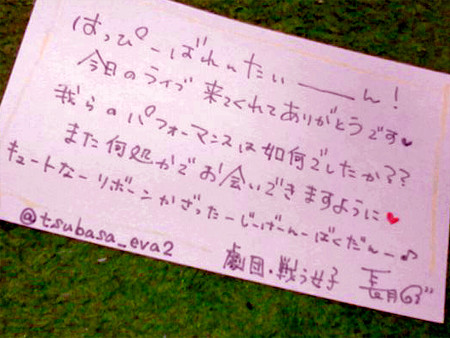 はっぴーばれんたいーーん!
今日のライブ 来てくれてありがとうです♥
我らのパフォーマンスは如何でしたか??
また何処かでお会いできますように♥
キュートなーリボーンかざったーじーげーんーばくだんー♪
@tsubasa_eva2
劇団・戦う女子